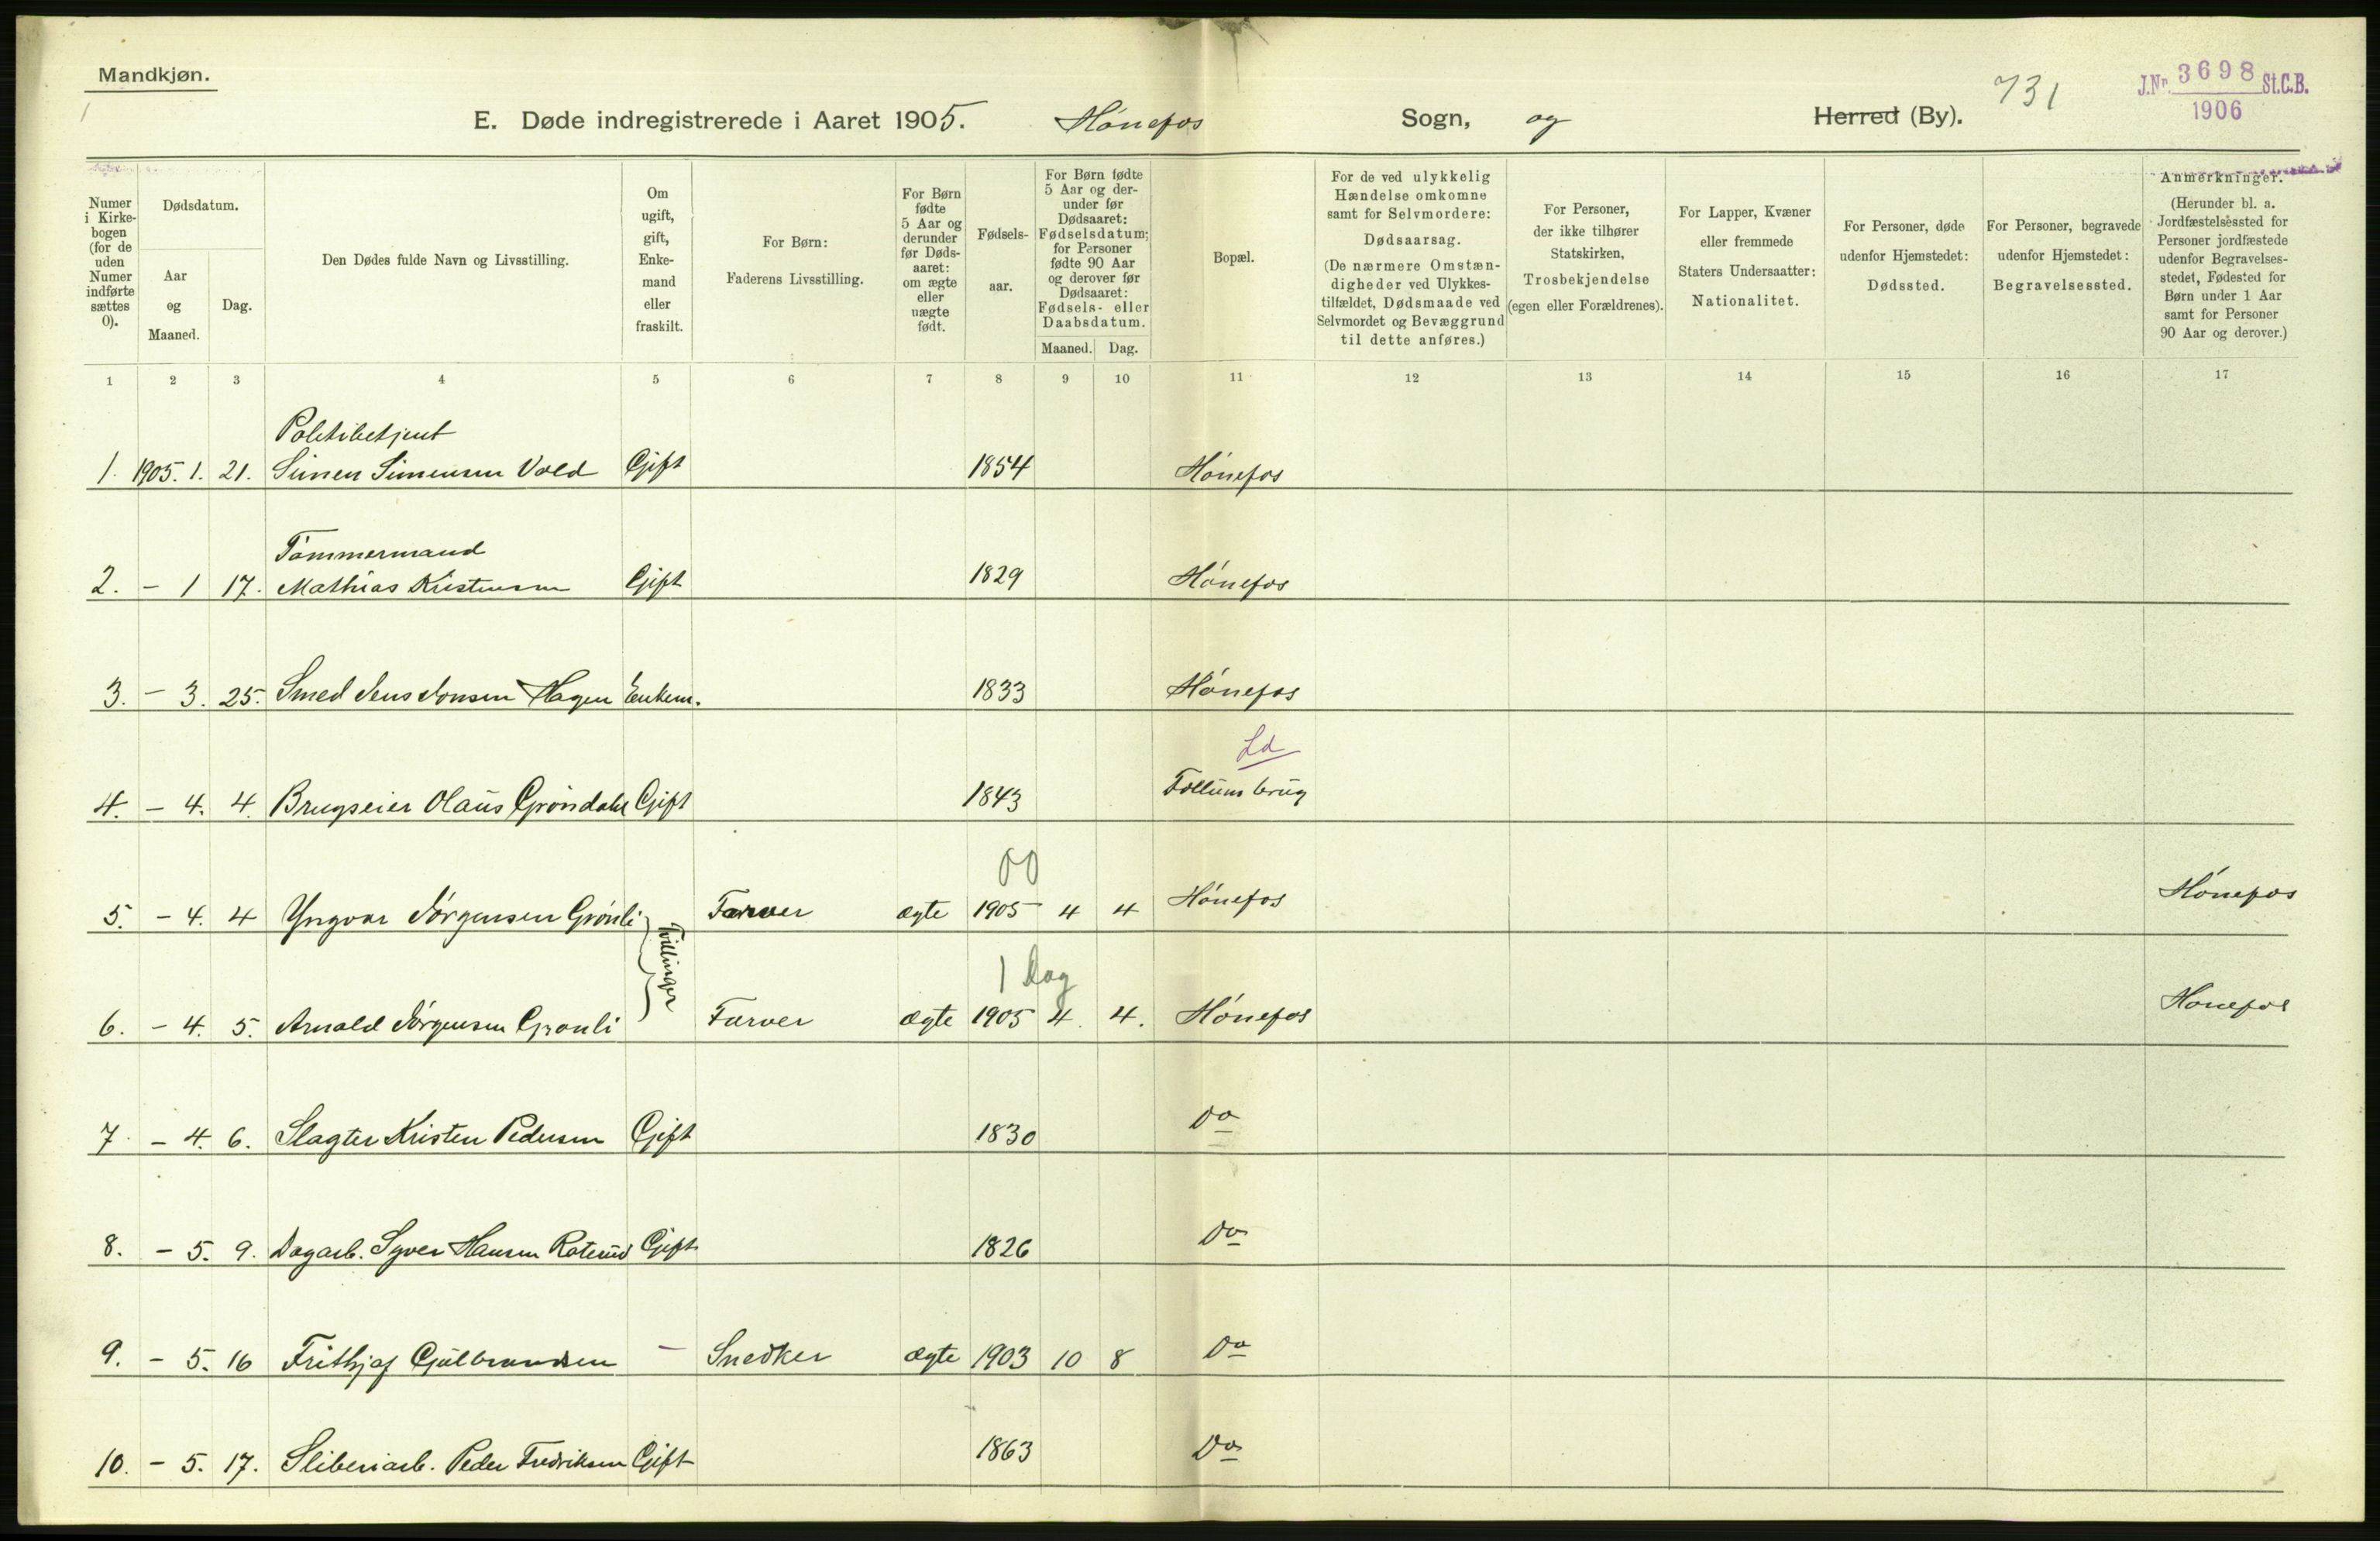 Mandkjøn.
1
E. Døde indregistrerede i Aaret 1905. Hønefos Sogn, og Herred (By).
731
J.Nr. 3698 St.C.B.
1906
Numer
i Kirke-
bogen
(for de
uden
Numer
indførte
sættes
0).
Dødsdatum.
Aar
og
Maaned.
Dag.
Den Dødes fulde Navn og Livsstilling.
Om
ugift,
gift,
Enke-
mand
eller
fraskilt.
For Børn:
Faderens Livsstilling.
For Børn
fødte
5 Aar og
derunder
før Døds-
aaret:
om ægte
eller
uægte
født.
Fødsels-
aar.
For Børn fødte
5 Aar og der-
under før
Dødsaaret:
Fødselsdatum;
for Personer
fødte 90 Aar
og derover før
Dødsaaret:
Fødsels- eller
Daabsdatum.
Maaned. Dag.
Bopæl.
For de ved ulykkelig
Hændelse omkomne
samt for Selvmordere:
Dødsaarsag.
(De nærmere Omstæn-
digheder ved Ulykkes-
tilfældet, Dødsmaade ved
Selvmordet og Bevæggrund
til dette anføres.)
For Personer,
der ikke tilhører
Statskirken,
Trosbekjendelse
(egen eller Forældrenes).
For Lapper, Kvæner
eller fremmede
Staters Undersaatter:
Nationalitet.
For Personer, døde
udenfor Hjemstedet:
Dødssted.
For Personer, begravede
udenfor Hjemstedet:
Begravelsessted.
Anmerkninger.
(Herunder bl. a.
Jordfæstelsessted for
Personer jordfæstede
udenfor Begravelses-
stedet, Fødested for
Børn under 1 Aar
samt for Personer
90 Aar og derover.)
1 2 3 4 5 6 7 8 9 10 11 12 13 14 15 16 17
Politibetjent
1. 1905. 1. 21. Simen Simensen Vold Gift 1854 Hønefos
Tømmermand
2. - 1 17. Mathias Kristensen Gift 1829 Hønefos
3. - 3. 25. Smed Jens Jonsen Hagen Enkem. 1833 Hønefos
Ld
4. - 4. 4. Brugseier Olaus Grøndahl Gift 1843 Follum brug
00
5. - 4. 4 Yngvar Jørgensen Grønli Farver ægte 1905 4 4 Hønefos Hønefos
Tvillinger
1 Dag
6. - 4. 5. Arnold Jørgensen Grønli Farver ægte 1905 4. 4. Hønefos Hønefos
7. - 4. 6. Slagter Kristen Pedersen Gift 1830 Do
8. - 5. 9. Dagarb. Syver Hansen Roterud Gift 1826 Do
9. - 5. 16 Frithjof Gulbrandsen - Snedker ægte 1903 10 8 Do
10. - 5. 17. Sliberiarb. Peder Fredriksen Gift 1863 Do